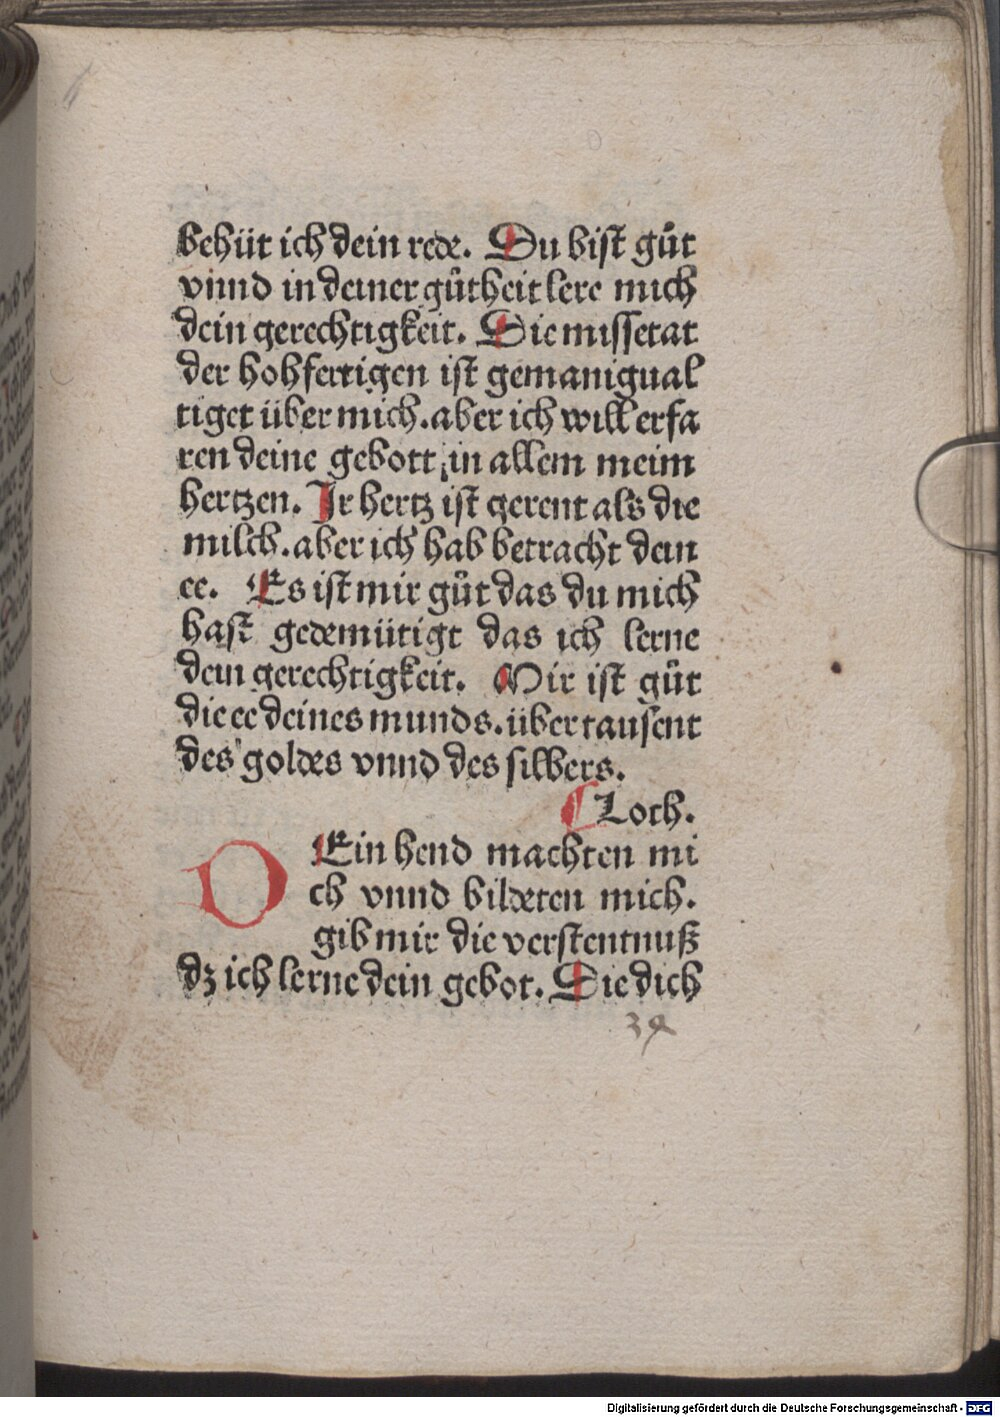 behüt ich dein rede. Du bist gůt
vnnd in deiner gůtheit lere mich
dein gerechtigkeit. Die missetat
der hohfertigen ist gemanigual
tiget über mich. aber ich will erfa
ren deine gebott, in allem meim
hertzen. Ir hertz ist gerent als die
milch. aber ich hab betracht dein
ee. Es ist mir gůt das du mich
hast gedemütigt das ich lerne
dein gerechtigkeit. Mir ist gůt
die ee deines munds. über tausent
des goldes vnnd des silbers.
Ioth.
DEin hend machten mi
ch vnnd bildeten mich.
gib mir die verstentnuß
dz ich lerne dein gebot. Die dich
Digitalisierung gefördert durch die Deutsche Forschungsgemeinschaft - DFG